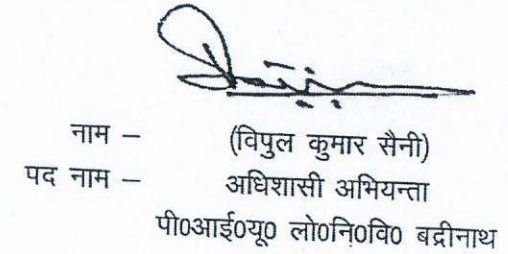 नाम – (विपुल कुमार सैनी)
पद नाम – अधिशासी अभियन्ता
पी0आई0यू0 लो0नि0वि0 बद्रीनाथ